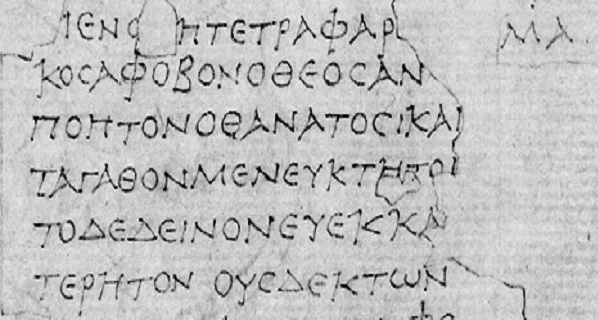 ΙΕΝϹ ΗΤΕΤΡΑΦΑΡ ΜΑ
ΚΟϹΑΦΟΒΟΝΟΘΕΟϹΑΝ
ΠΟΗΤΟΝΟΘΑΝΑΤΟϹΙΚΑΙ
ΤΑΓΑΘΟΝΜΕΝΕΥΚΤΗΤΟΙ
ΤΟΔΕΔΕΙΝΟΝΕΥΕΚΚΑΙ
ΤΕΡΗΤΟΝ ΟΥϹΔΕΚΤΩΝ